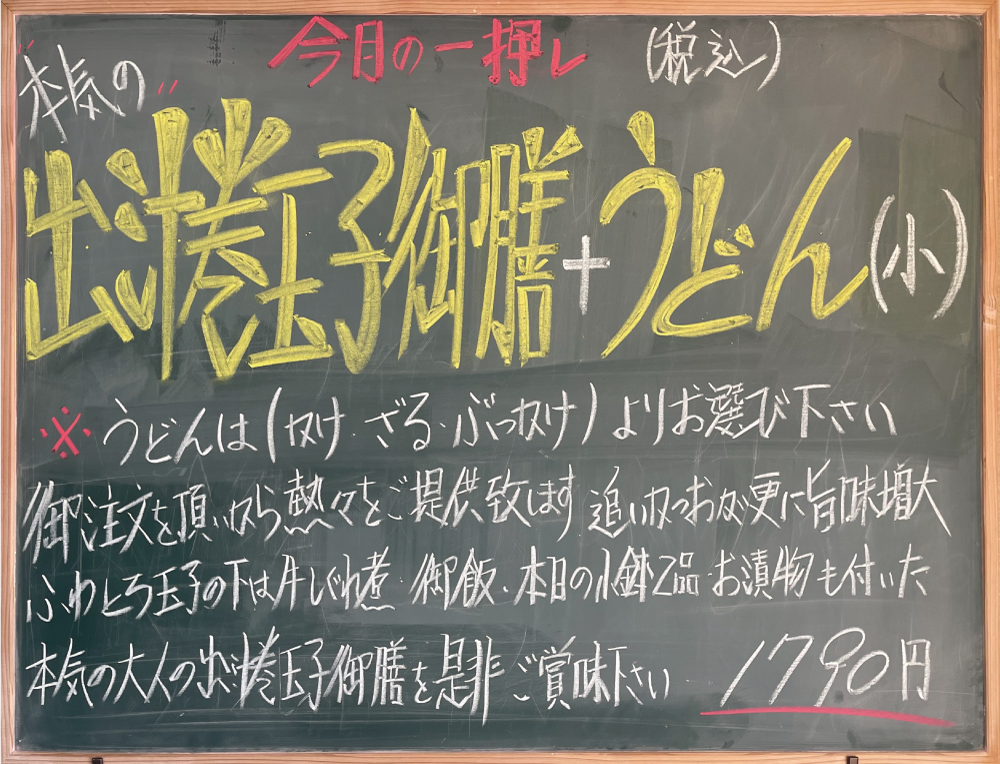 今月の一押し (税込)
"本気の"
出汁巻玉子御膳+うどん(小)
※うどんは(かけ・ざる・ぶっかけ)よりお選び下さい
御注文を頂いてから熱々をご提供致します 追いがつおで更に旨味増大
ふわとろ玉子の下は牛しぐれ煮 御飯・本日の小鉢2品・お漬物も付いた
本気の大人の出汁巻玉子御膳を是非ご賞味下さい 1790円